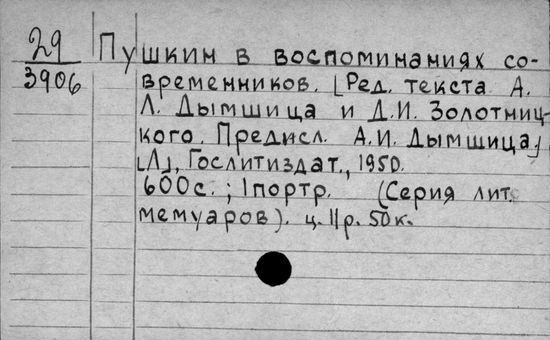 29 Пушкин в воспоминаниях со-
3906 временников. [Ред. текста А.
Л. Дымшица и Д.И. Золотниц-
кого. Предисл. А.И. Дымшица]
[Л], Гослитиздат., 1950.
600с.; 1портр. (Серия лит.
мемуаров). ц.11р. 50к.